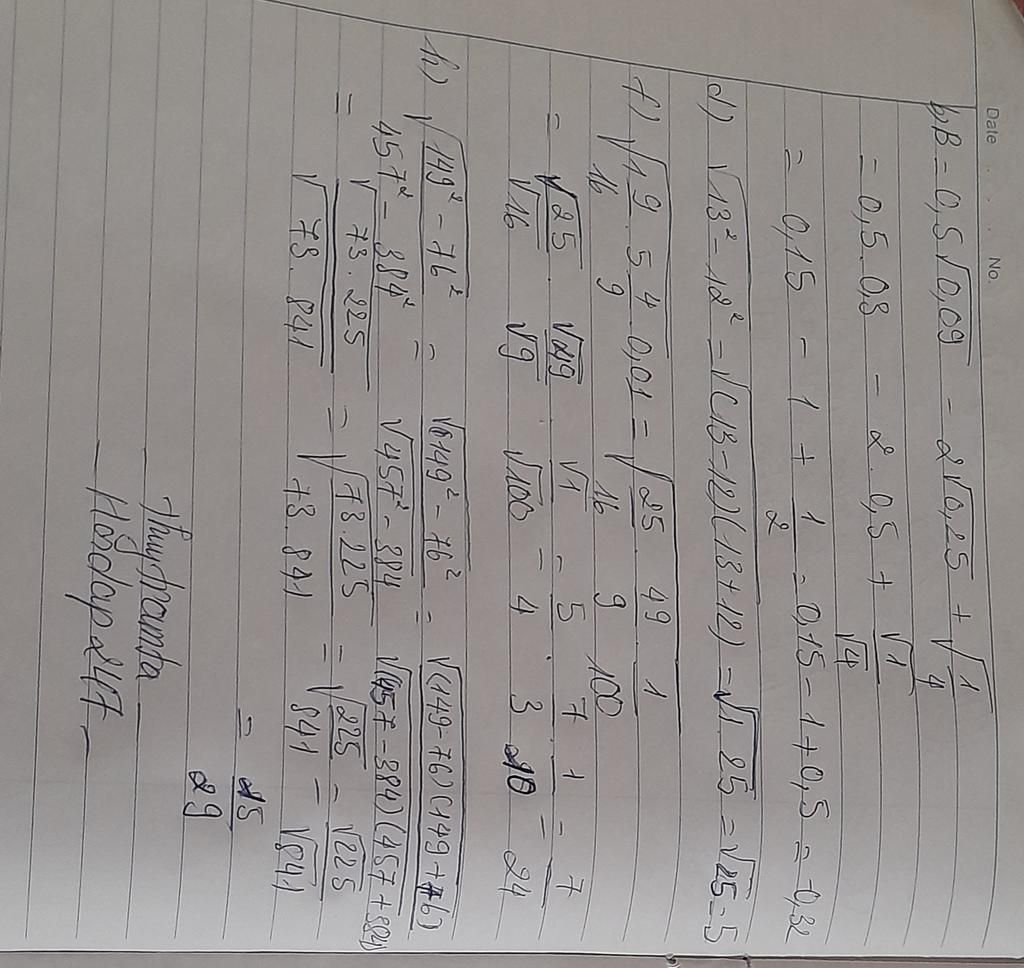 Date No.
b, B = 0,5√0,09 - 2√0,25 + √(1/4)
= 0,5 . 0,3 - 2 . 0,5 + √1/√4
= 0,15 - 1 + 1/2 = 0,15 - 1 + 0,5 = -0,3
d) √(13² - 12²) = √((13-12)(13+12)) = √(1.25) = √25 = 5
f) √(1 9/16 . 5 4/9 . 0,01) = √(25/16 . 49/9 . 1/100)
= √25/√16 . √49/√9 . √1/√100 = 5/4 . 7/3 . 1/10 = 7/24
h) √((149² - 76²)/(457² - 384²)) = √(149² - 76²)/√(457² - 384) = √((149-76)(149+76))/√((457-384)(457+384))
= √(73.225)/√(73.841) = √(73.225/73.841) = √(225/841) = √225/√841
= 15/29
Hoclop24H